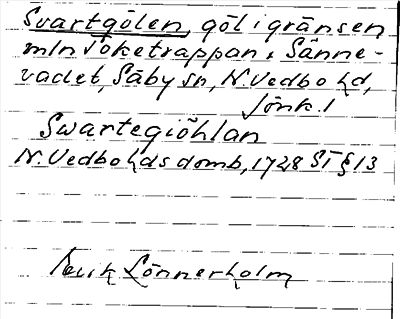 Svartgölen, göl i gränsen
mln Töketrappan & Sänne-
vadet, Säby sn, N. Vedbo hd,
Jönk. l
Swartegiöhlan
N. Vedbo hds domb, 1728 ST § 13
Lönnerholm